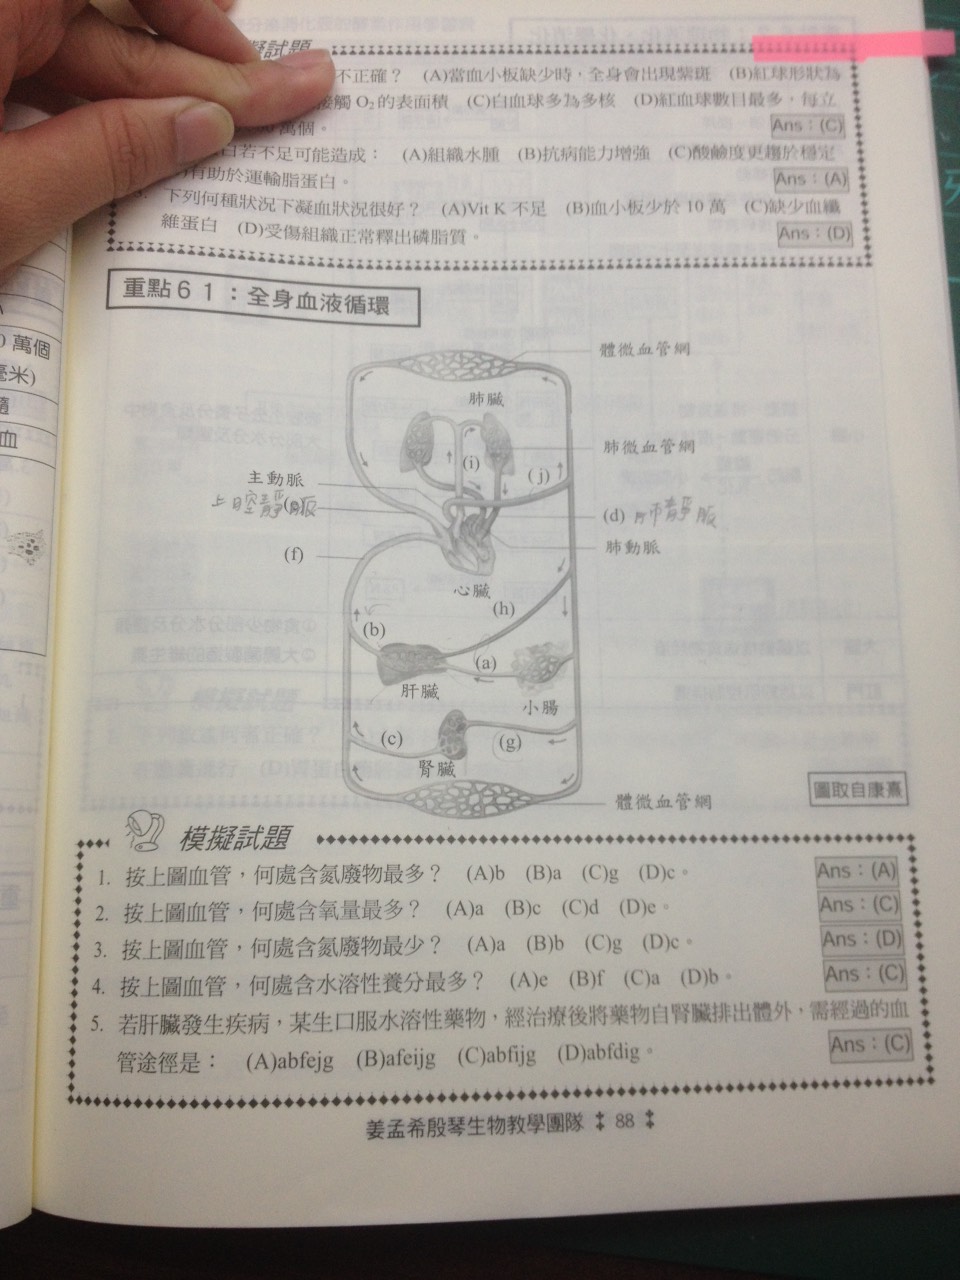 擬試題
不正確？ (A)當血小板缺少時，全身會出現紫斑 (B)紅球形狀為
接觸 O₂的表面積 (C)白血球多為多核 (D)紅血球數目最多，每立
萬個。 Ans：(C)
白若不足可能造成： (A)組織水腫 (B)抗病能力增強 (C)酸鹼度更趨於穩定
有助於運輸脂蛋白。 Ans：(A)
下列何種狀況下凝血狀況很好？ (A)Vit K 不足 (B)血小板少於 10 萬 (C)缺少血纖
維蛋白 (D)受傷組織正常釋出磷脂質。 Ans：(D)
重點61：全身血液循環
萬個
毫米)
血
體微血管網
肺臟
肺微血管網
(i)
(j)
主動脈
上腔靜脈
(d) 肺靜脈
肺動脈
(f)
心臟
(h)
(b)
(a)
肝臟
小腸
(c)
(g)
腎臟
體微血管網
圖取自康熹
模擬試題
1. 按上圖血管，何處含氮廢物最多？ (A)b (B)a (C)g (D)c。 Ans：(A)
2. 按上圖血管，何處含氧量最多？ (A)a (B)c (C)d (D)e。 Ans：(C)
3. 按上圖血管，何處含氮廢物最少？ (A)a (B)b (C)g (D)c。 Ans：(D)
4. 按上圖血管，何處含水溶性養分最多？ (A)e (B)f (C)a (D)b。 Ans：(C)
5. 若肝臟發生疾病，某生口服水溶性藥物，經治療後將藥物自腎臟排出體外，需經過的血
管途徑是： (A)abfejg (B)afeijg (C)abfijg (D)abfdig。 Ans：(C)
姜孟希殷琴生物教學團隊 88